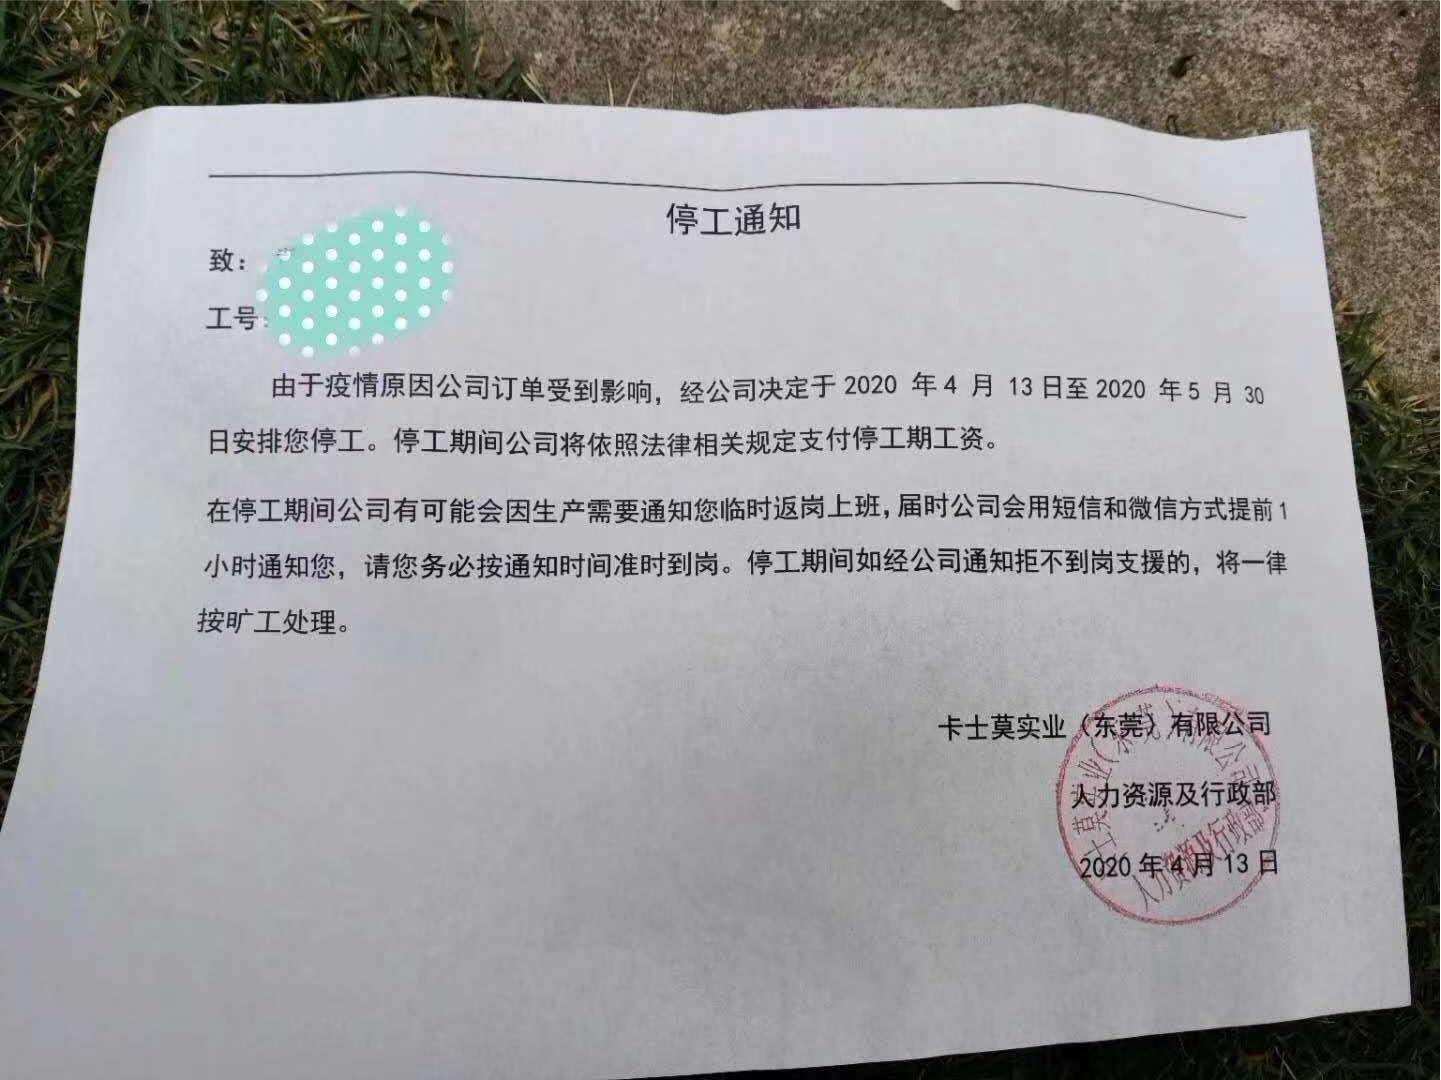 停工通知
致：
工号：
由于疫情原因公司订单受到影响，经公司决定于2020 年4 月 13日至2020 年5 月 30
日安排您停工。停工期间公司将依照法律相关规定支付停工期工资。
在停工期间公司有可能会因生产需要通知您临时返岗上班，届时公司会用短信和微信方式提前1
小时通知您，请您务必按通知时间准时到岗。停工期间如经公司通知拒不到岗支援的，将一律
按旷工处理。
卡士莫实业（东莞）有限公司
人力资源及行政部
2020 年4 月 13 日
士莫实业(东莞)有限公司
人力资源及行政部